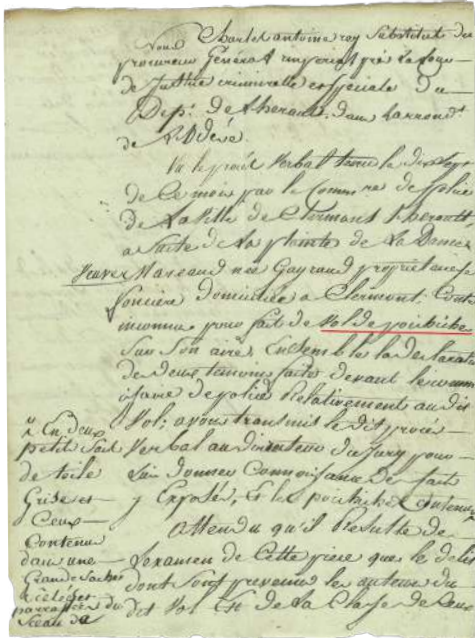 Nous Charles antoine rey Substitut du
procureur Général imperial près la Cour
de Justice criminelle et speciale du
Dep.t de l'herault, dans l'arrond.t
de Lodève.
Vu le procès Verbal tenu le dix sept
de Ce mois par le Commre de police
de La Ville de Clermont l'herault
a Suite de la plainte de La Dame
Veuve Mareaud née Gayraud propriétaire
fonciere domiciliée a Clermont Contre
inconnu pour fait de Vol de
Sur Son aire, Ensemble la declaration
de deux temoins faites devant le comm
de police Relativement au dit
Vol; avons transmit le dit procès
Verbal au directeur du Jury pour
Lui donner Connoissance du fait
y Exposé, et les
attendu qu'il Resulte de
L'examen de Cette piece que le delit
dont Sont prevenus les auteurs du
dit Vol Est de la Classe de Ceux
En deux
petit Sacs
de toile
Grise et
Ceux
Contenu
dans une
Grande